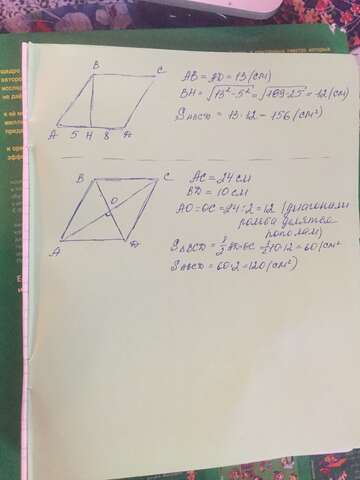 B
C
A 5 H 8 D
AB = AD = 13 (см)
BH = √13² - 5² = √169 - 25 = 12 (см)
SABCD = 13 · 12 = 156 (см²)
B
C
O
A
D
AC = 24 см
BD = 10 см
AO = OC = 24 : 2 = 12 (диагонали
ромба делятся
пополам)
10 · 12 = 60 (см²
SABCD = 60 · 2 = 120 (см²)